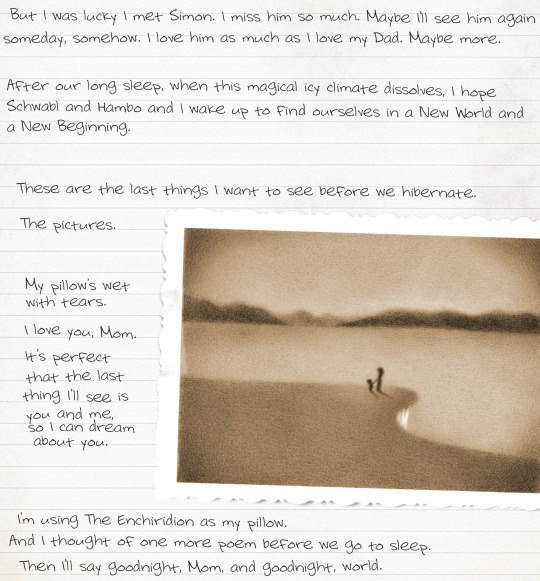 But I was lucky I met Simon. I miss him so much. Maybe I'll see him again
someday, somehow. I love him as much as I love my Dad. Maybe more.
After our long sleep, when this magical icy climate dissolves, I hope
Schwabl and Hambo and I wake up to find ourselves in a New World and
a New Beginning.
These are the last things I want to see before we hibernate.
The pictures.
My pillow's wet
with tears.
I love you, Mom.
It's perfect
that the last
thing I'll see is
you and me,
so I can dream
about you.
I'm using The Enchiridion as my pillow.
And I thought of one more poem before we go to sleep.
Then I'll say goodnight, Mom, and goodnight, world.